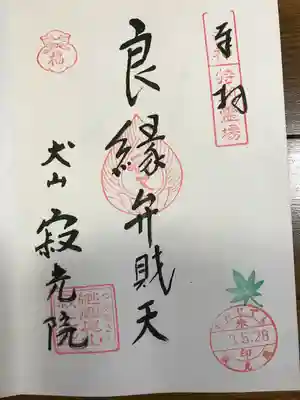 奉拝
良縁弁財天
犬山 寂光院
福
霊場
5.28
印